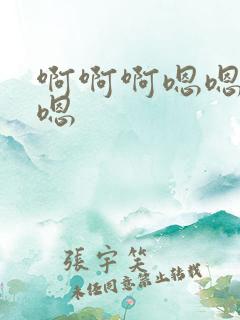 啊啊啊嗯嗯
嗯
張宇笑
未经同意禁止转载